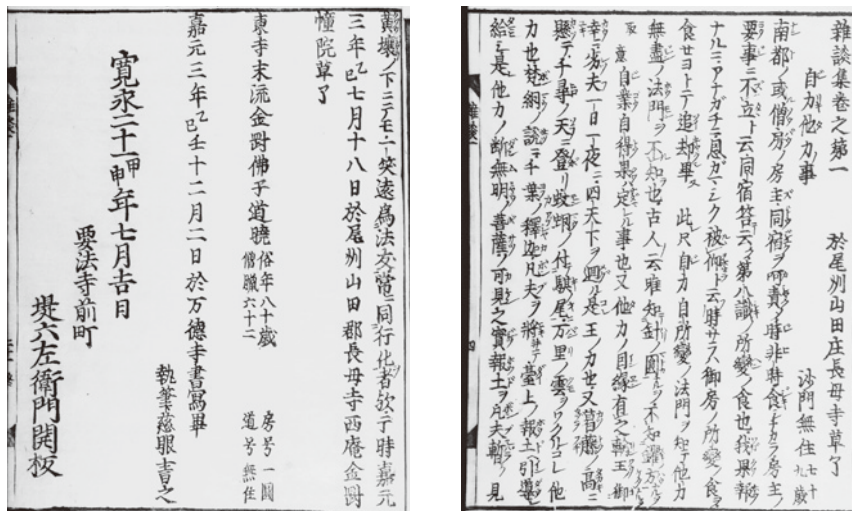 雜談集卷之第一　於尾州山田庄長母寺草了
自力他力事　沙門無住七十九歳
南都ノ或僧房ノ房主同宿ヲ呵責ノ時非時食ナカラ房主ノ
要事ニ不立ト云同宿答云ク第八識ノ所變ノ食也我果報
ナルニアナガチニ恩ガマシク被仰ト云時サラハ御房ノ所變ノ食ヲ
食セヨトテ追却畢　此只自力自所變ノ法門ヲ知テ他力
無盡ノ法門ヲ不知也古人云唯知針頭圓ヲ不知
自業自得果ハ定レル事也又他力ノ因縁有之輪王御
幸ニ劣夫一日一夜ニ四天下ヲ廻ル是王ノ力也又葛藤ノ高
懸テ千尋ノ天ニ登リ蚊蝱ノ付騏尾ニ万里ノ雲ヲワクルコレ他
力也梵網ノ談ニ千葉ノ釋迦凡夫ヲ將テ臺上ノ報土引導
給シ是他力ノ断無明ノ菩薩ノ可見之實報土ヲ凡夫暫ク見
黄壤ノ下ニテモ一笑遠為法友當ニ同行化者欤于時嘉元
三年乙巳七月十八日於尾州山田郡長母寺西庵金剛
幢院草了
東寺末流金剛佛子道曉　俗年八十歳　僧臘六十二　房号一圓　道号無住
嘉元三年乙巳壬十二月二日於万德寺書寫畢
執筆慈眼書之
寛永二十一甲申年七月吉日
要法寺前町
堤六左衛門開板